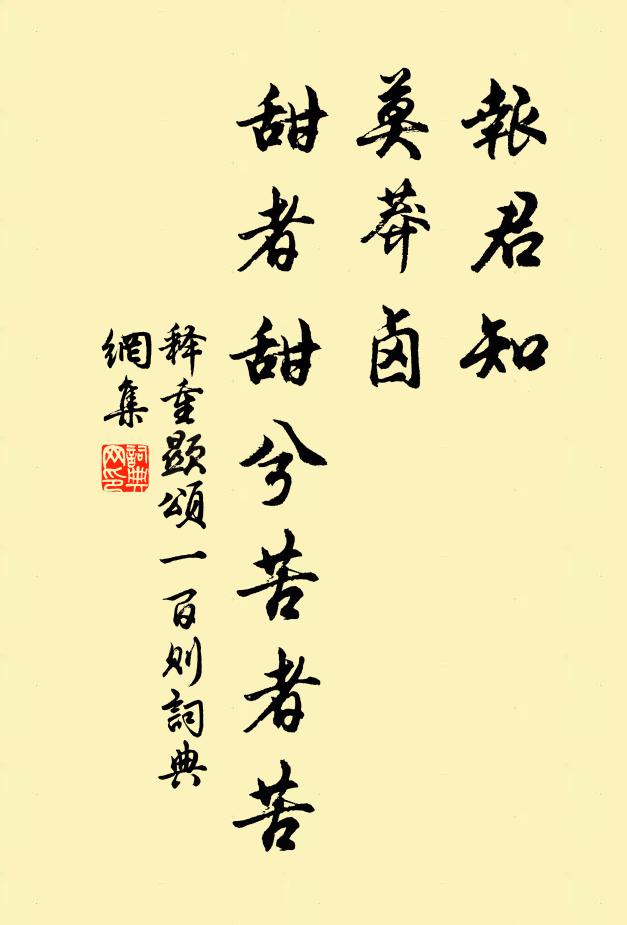 報君知
莫莽鹵
甜者甜兮苦者苦
释重顯頌一百则詞典
網集
詞典
网印